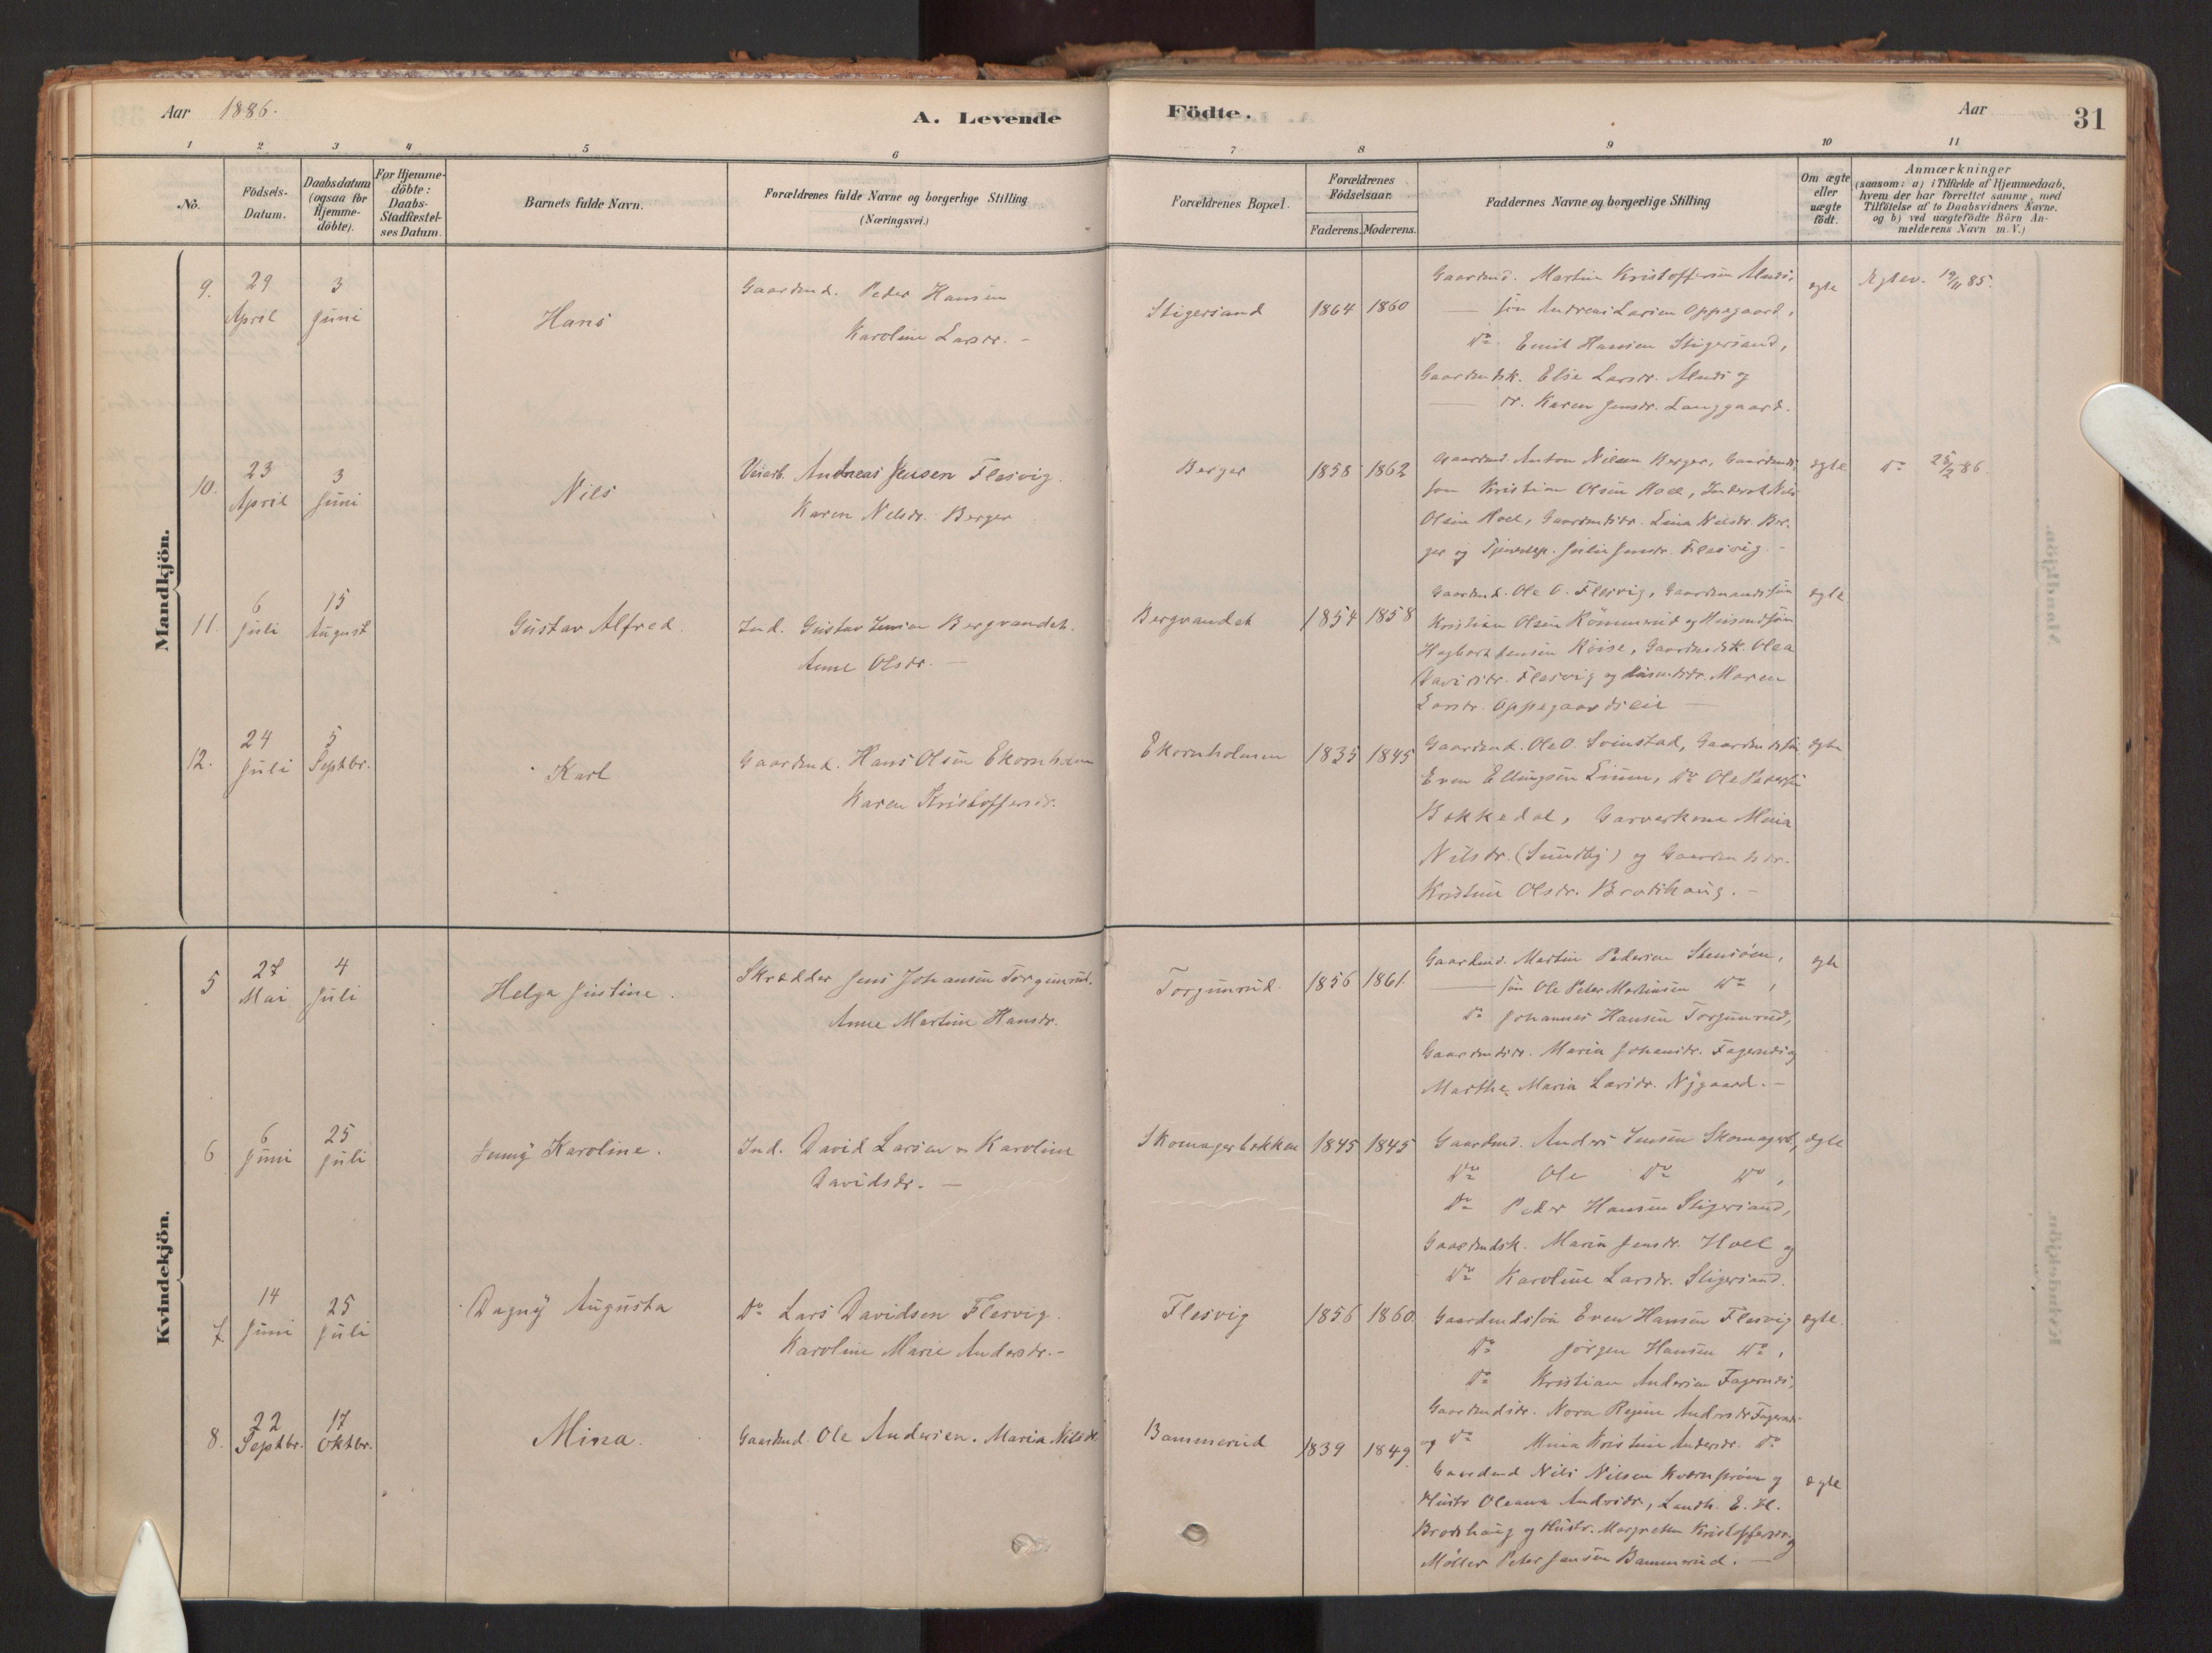 Aar 1886.
A. Levende
Födte.
Aar
31
1 2 3 4 5 6 7 8 9 10 11
No.
Födsels-
Datum.
Daabsdatum
(ogsaa for
Hjemme-
döbte).
For Hjemme-
döbte:
Daabs-
Stadfæstel-
ses Datum.
Barnets fulde Navn.
Forældrenes fulde Navne og borgerlige Stilling
(Næringsvei.)
Forældrenes Bopæl.
Forældrenes
Födselsaar.
Faderens. Moderens.
Faddernes Navne og borgerlige Stilling
Om ægte
eller
uægte
födt.
Anmærkninger
(saasom: a) i Tilfælde af Hjemmedaab,
hvem der har forrettet samme, med
Tilföielse af to Daabsvidners Navne.
og b) ved uægtefödte Börn An-
melderens Navn m.V.)
Mandkjön.
9. 29 April 3 Juni
Hans
Gaardmd. Peder Hansen
Karoline Larsdr. -
Stigersand 1864 1860
Gaardmd. Martin Kristoffersen
— søn Andreas Larsen Oppegaard,
Do Emil Hansen Stigersand,
Gaardmdsk. Else Larsdr. og
— dr. Karen Jensdr. Langgaard.
egte
19/11 85.
10. 23 April 3 Juni
Nils
Andreas Jensen Flesvig.
Karen Nilsdr. Berger
Berger 1858 1862
Gaardmd. Anton Nilsen Berger, Gaardmds
søn Kristian Olsen Hoel, Nils
Olsen Hoel, Gaardmdsdr. Lina Nilsdr. Ber-
ger og Julie Jensdr. Flesvig. -
egte
Do 28/2 86.
11. 6 Juli 15 August
Gustav Alfred.
Ind. Gustav Bergvandet.
Anne Olsdr. —
Bergvandet 1854 1858
Gaardmd. Ole O. Flesvig, Gaardmandssøn
Kristian Olsen og
Hagbart Jensen Röise, Gaardmdsk. Olea
Davidsdr. Flesvig og Maren
Larsdr. Oppegaardseie —
egte
12. 24 Juli 5 Septbr.
Karl
Gaardmd. Hans Olsen Ekornholm
Karen Kristoffersdr.
Ekornholmen 1835 1845
Gaardmd. Ole O. Svinstad, Gaardmdssøn
Even Ellingsen, Do Ole
Bakkedal, Garverkone
Nilsdr. (Sundby) og Gaardmdsdr.
Kristine Olsdr. Brodshaug. -
egte
Kvindekjön.
5 27 Mai 4 Juli
Helga Justine.
Skrædder Jens Johansen Torgunrud.
Anne Martine Hansdr.
Torgunrud. 1856 1861.
Gaardmd. Martin Pedersen,
— søn Ole Peter Martinsen Do,
Do Johannes Hansen Torgunrud,
Gaardmdsdr. Maria Johansdr. og
Marthe Maria Larsdr. Nygaard. -
egte
6 6 Juni 25 Juli
Jenny Karoline.
Ind. David Larsen og Karoline
Davidsdr. —
Skomagerbakken 1845 1845
Gaardmd. Anders Jensen Skomagerb,
Do Ole Do Do,
Do Peder Hansen Stigersand,
Gaardmdsk. Maria Jensdr. Hoel og
Do Karoline Larsdr. Stigersand.
egte
7. 14 Juni 25 Juli
Dagny Augusta
Do Lars Davidsen Flesvig.
Karoline Marie Andersdr. -
Flesvig 1856 1860.
Gaardmdssøn Even Hansen Flesvig
Do Jörgen Hansen Do,
Do Kristian Andersen
Gaardmdsdr. Nora Regine Andersdr.
og Do Mina Kristine Andersdr. Do
egte.
8. 22 Septbr. 17 Oktbr.
Mina.
Gaardmd. Ole Andersen. Maria Nilsdr.
Bammerud 1839 1849.
Gaardmd Nils Nilsen og
Hustr Oleana Andersdr., Landh. E. H.
Brodshaug og Hustr. Margrethe Kristoffersdr. og
Möller Peter Jansen Bammerud. —
egte